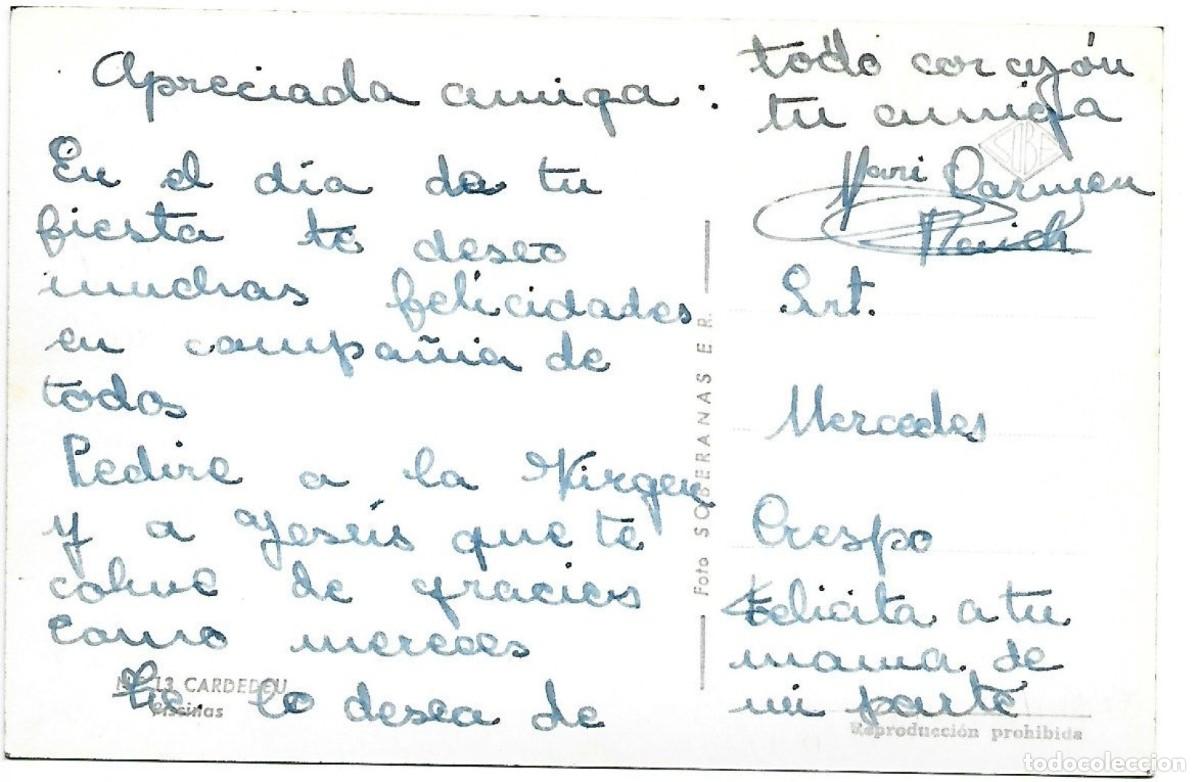 Apreciada amiga:
En el día de tu
fiesta te deseo
muchas felicidades
en compañia de
todos
Pedire a la Virgen
y a Jesús que te
colme de gracias
como mereces
Te lo desea de
todo corazón
tu amiga
Mari Carmen
Srt.
Mercedes
Crespo
Felicita a tu
mama de
mi parte
Foto SOBERANAS E R.
13 CARDEDEU
Piscinas
Reproducción prohibida
todocoleccion